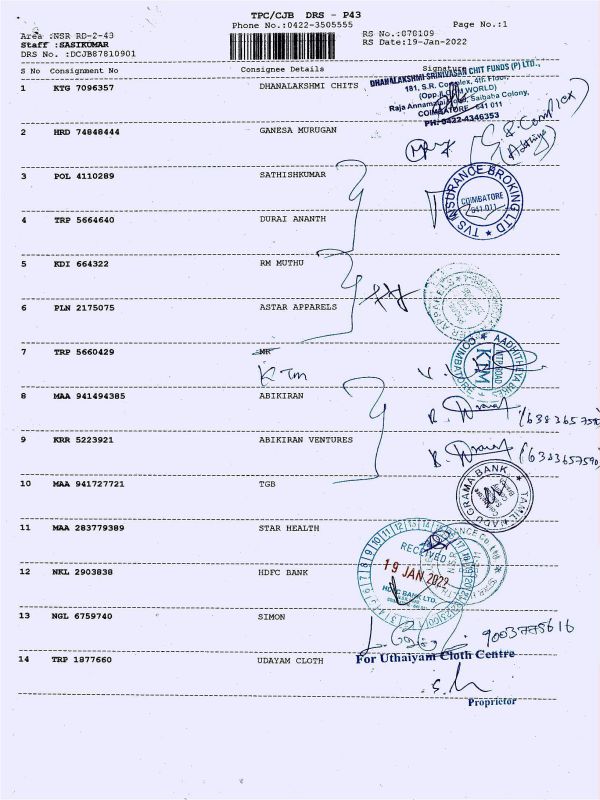 TPC/CJB DRS - P43
Phone No.:0422-3505555
Page No.:1
Area :NSR RD-2-43
Staff :SASIKUMAR
DRS No. :DCJB87810901
RS No.:878109
RS Date:19-Jan-2022
S No Consignment No Consignee Details Signature
1 KTG 7096357 DHANALAKSHMI CHITS
DHANALAKSHMI SRINIVASAN CHIT FUNDS (P) LTD.,
181, S.R. Complex, 4th Floor,
Saibaba Colony,
COIMBATORE - 641 011
PH: 0422-4346353
2 HRD 74848444 GANESA MURUGAN
3 POL 4110289 SATHISHKUMAR
TVS INSURANCE BROKING LTD
COIMBATORE
641 011
4 TRP 5664640 DURAI ANANTH
5 KDI 664322 RM MUTHU
6 PLN 2175075 ASTAR APPARELS
7 TRP 5660429 MR
KTM
COIMBATORE
NTP ROAD
KTM
8 MAA 941494385 ABIKIRAN
9 KRR 5223921 ABIKIRAN VENTURES
(6383657590)
10 MAA 941727721 TGB
TAMIL NADU GRAMA BANK
11 MAA 283779389 STAR HEALTH
RECEIVED
19 JAN 2022
HDFC BANK LTD
12 NKL 2903838 HDFC BANK
13 NGL 6759740 SIMON
9003775616
14 TRP 1877660 UDAYAM CLOTH
For Uthaiyam Cloth Centre
Proprietor